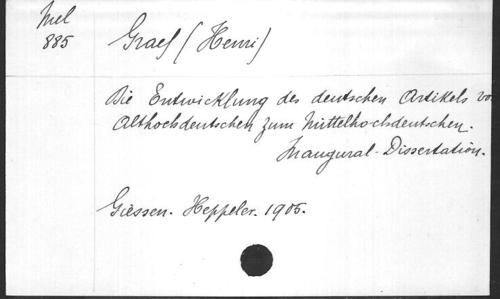 Mel
885
Graef (Henri)
Die Entwicklung des deutschen Artikels vo
Althochdeutschen zum Mittelhochdeutschen.
Inaugural-Dissertation.
Giessen. Heppeler. 1905.